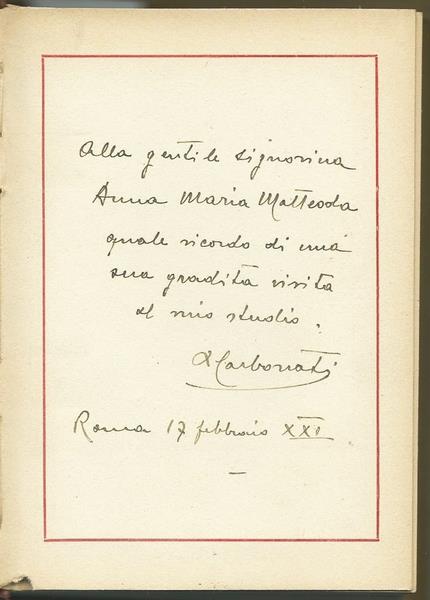 Alla gentile signorina
Anna Maria Matteoda
quale ricordo di una
sua gradita visita
al mio studio.
A Carbonati
Roma 17 febbraio XXI